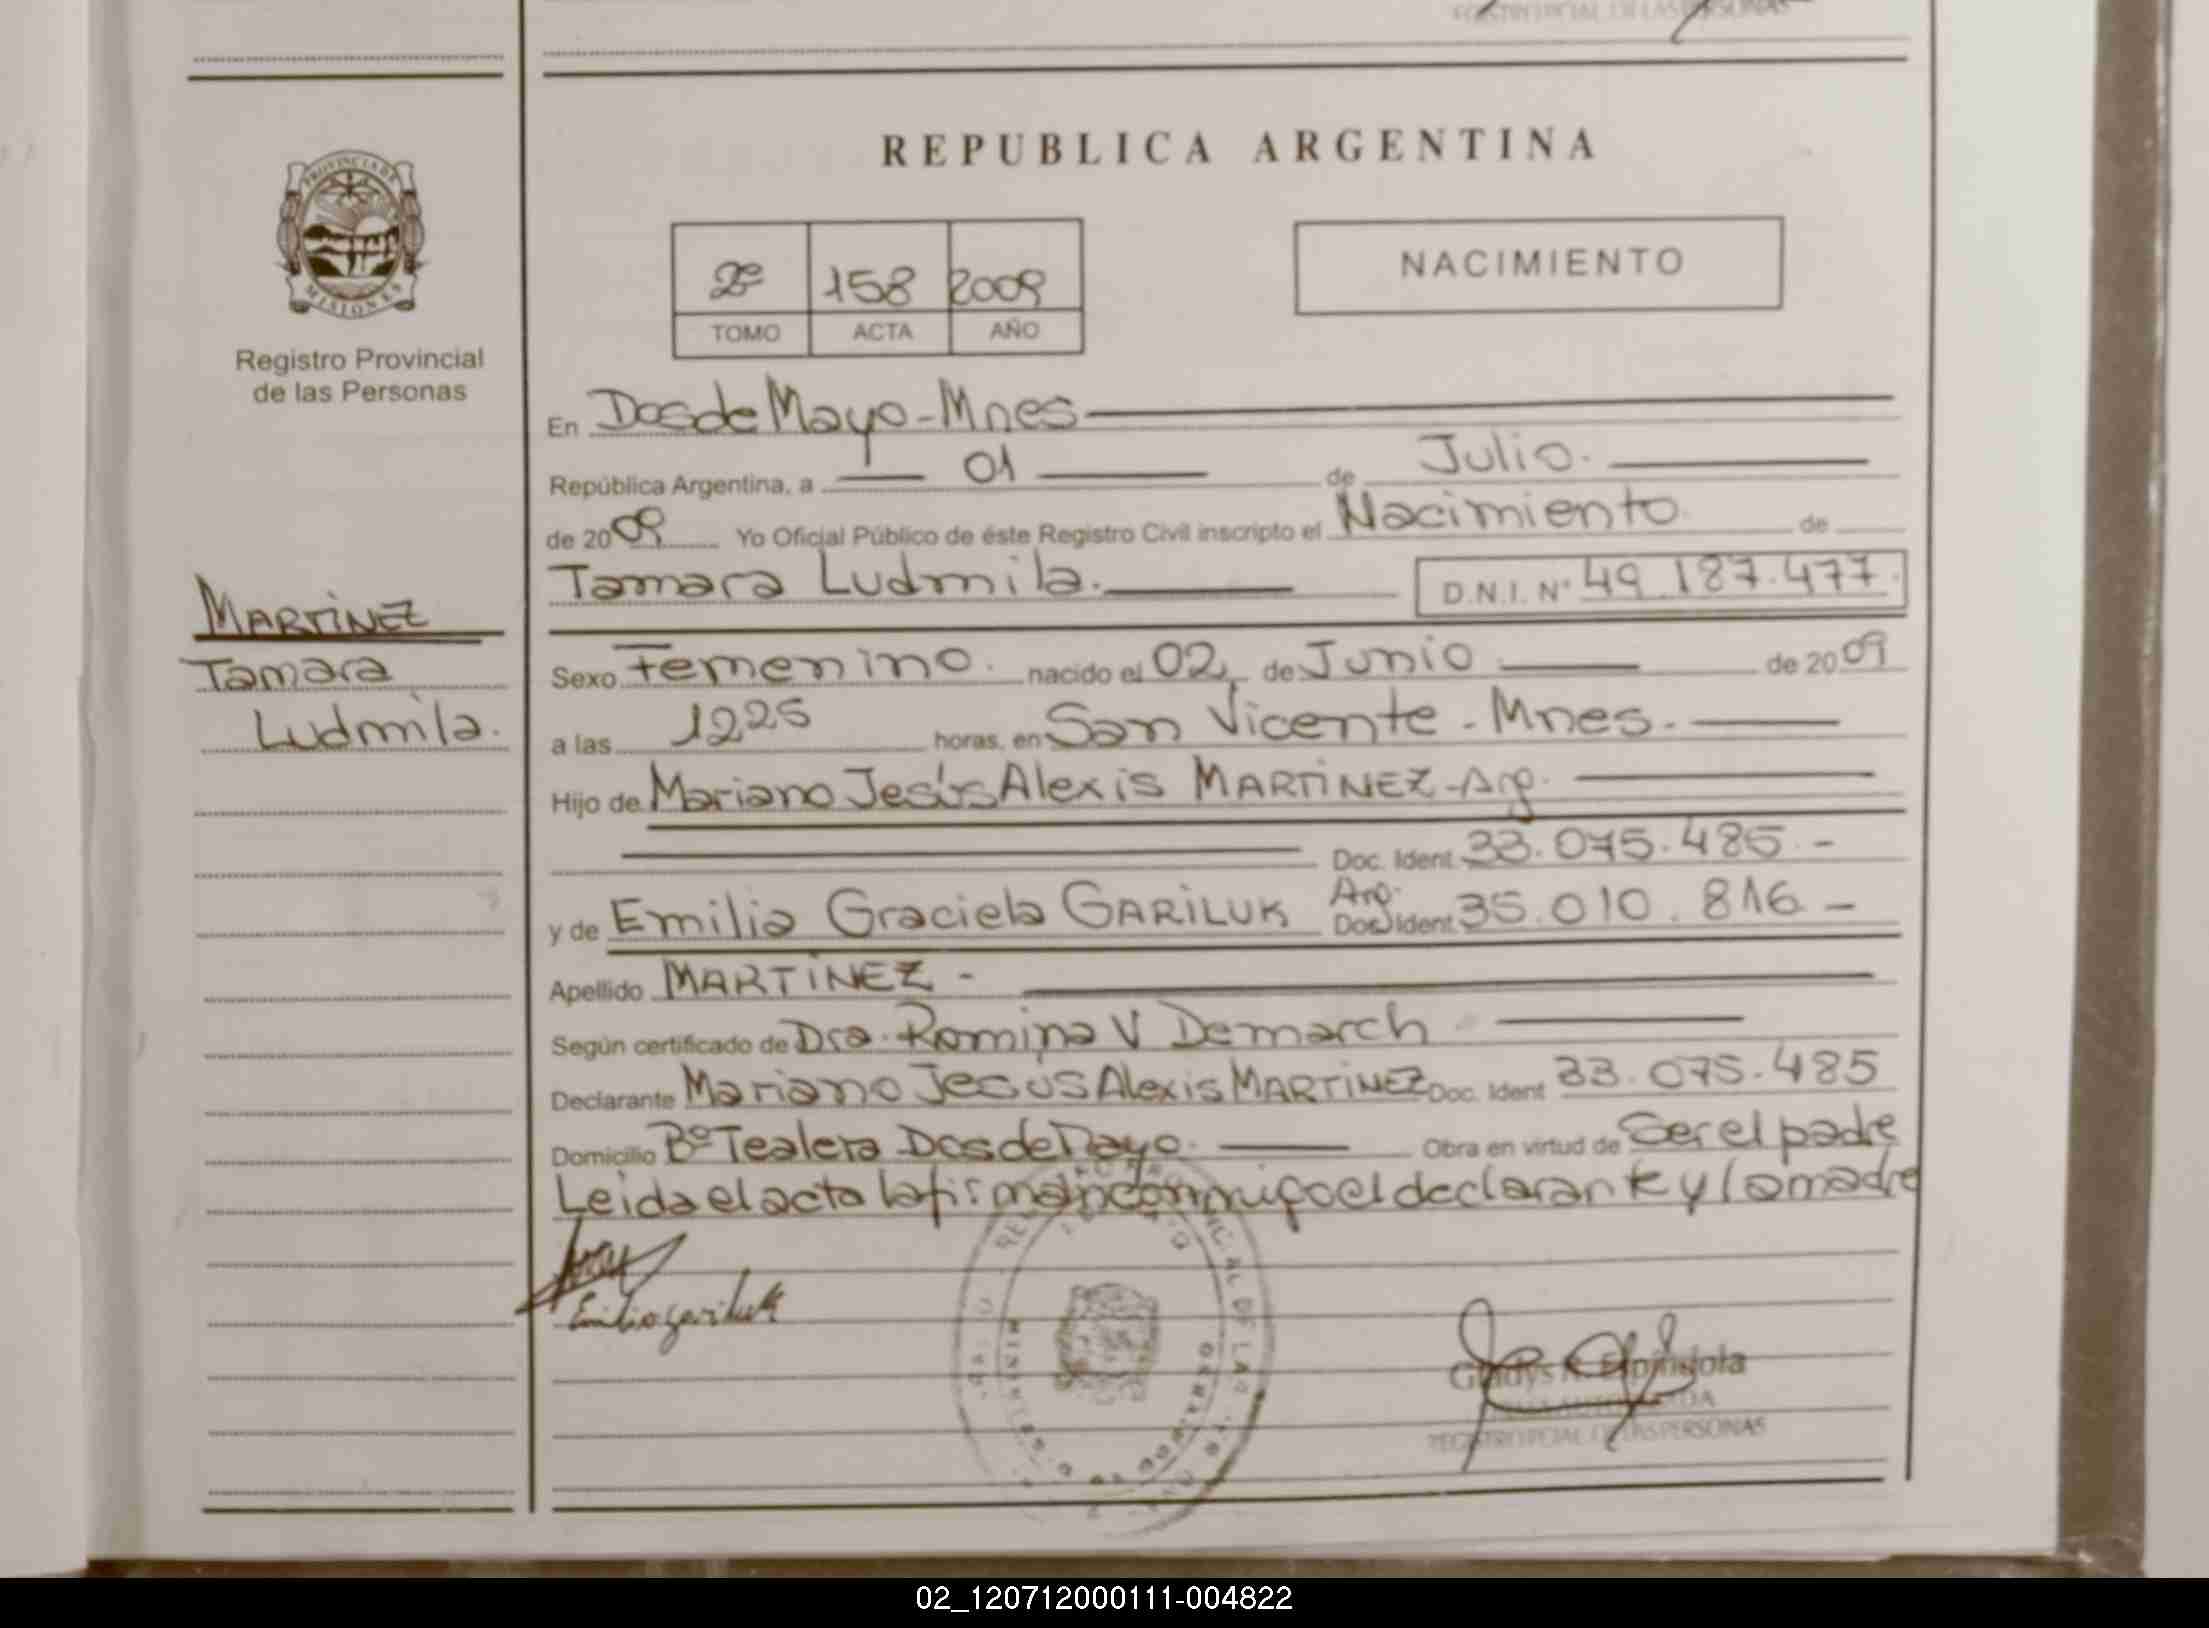 REPUBLICA ARGENTINA
PROVINCIA DE
MISIONES
Registro Provincial
de las Personas
2º 158 2009
TOMO ACTA AÑO
NACIMIENTO
En Dos de Mayo - Mnes
República Argentina, a 01 de Julio.
de 2009 Yo Oficial Público de éste Registro Civil inscripto el Nacimiento de
Tamara Ludmila. D.N.I. Nº 49.187.477.
MARTÍNEZ
Tamara
Ludmila.
Sexo Femenino. nacido el 02 de Junio de 2009
a las 1225 horas, en San Vicente - Mnes.
Hijo de Mariano Jesús Alexis MARTÍNEZ - Arg.
Doc. Ident. 33.075.485.-
y de Emilia Graciela GARILUK Arg. Doc. Ident. 35.010.816 -
Apellido MARTÍNEZ -
Según certificado de Dra. Romina V Demarch
Declarante Mariano Jesús Alexis MARTÍNEZ Doc. Ident 33.075.485
Domicilio Bº Tealera Dos de Mayo. Obra en virtud de Ser el padre
Leida el acta la firman conmigo el declarante y la madre
Emilia gariluk
Gladys R. Espíndola
REGISTRO PCIAL. DE LAS PERSONAS
02_120712000111-004822